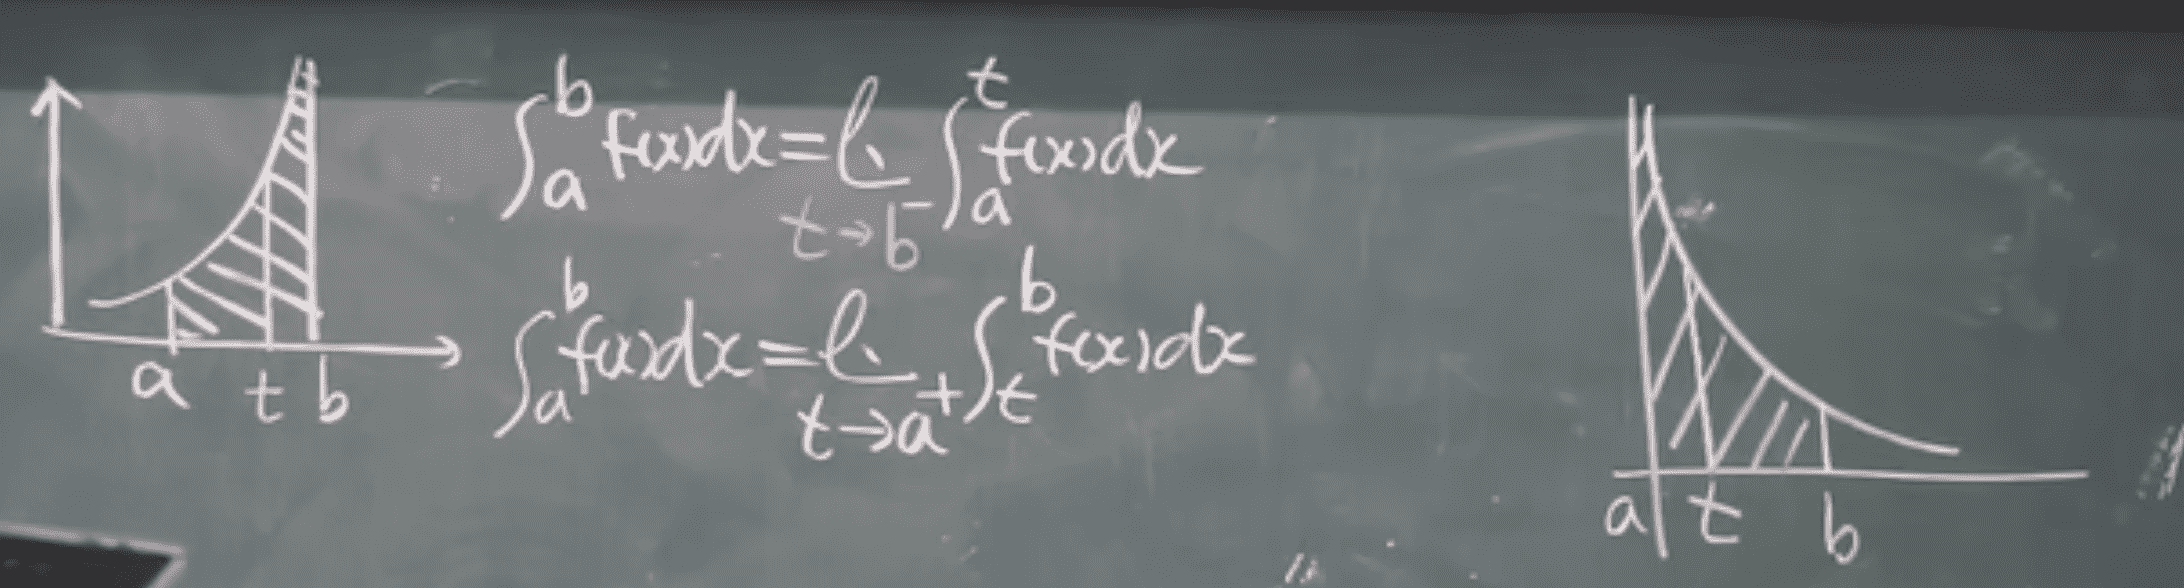 a t b
∫_a^b f(x)dx = l_{t→b⁻} ∫_a^t f(x)dx
∫_a^b f(x)dx = l_{t→a⁺} ∫_t^b f(x)dx
a t b